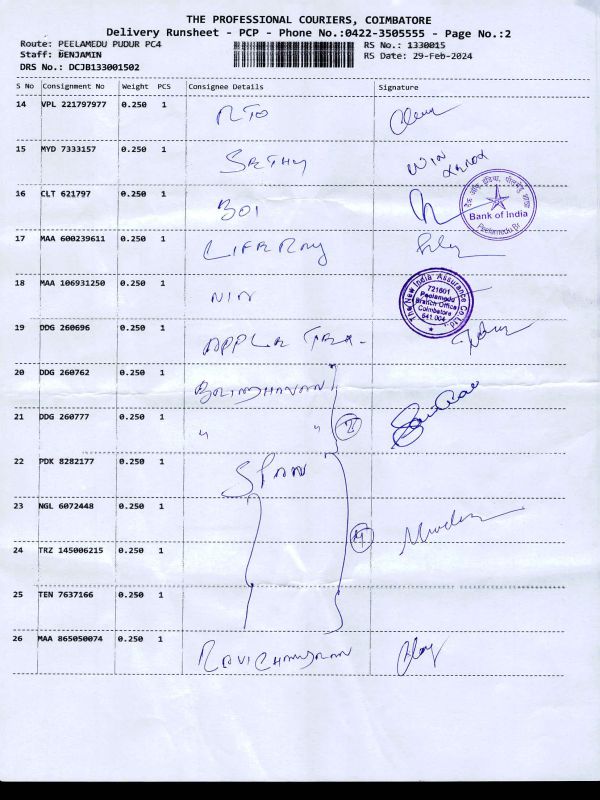 THE PROFESSIONAL COURIERS, COIMBATORE
Delivery Runsheet - PCP - Phone No.:0422-3505555 - Page No.:2
Route: PEELAMEDU PUDUR PC4
RS No.: 1330015
Staff: BENJAMIN
RS Date: 29-Feb-2024
DRS No.: DCJB133001502
S No Consignment No Weight PCS Consignee Details Signature
14 VPL 221797977 0.250 1 RTO
15 MYD 7333157 0.250 1 SRETHY WIN XEROX
16 CLT 621797 0.250 1 BOI
Bank of India
Peelamedu Br.
17 MAA 600239611 0.250 1 LIFE RAY
18 MAA 106931250 0.250 1 NIN
The New India Assurance Co. Ltd
721601
Peelamedu
Branch Office
Coimbatore
641 004
19 DDG 260696 0.250 1 APPLE
20 DDG 260762 0.250 1
21 DDG 260777 0.250 1 " " 2
22 PDK 8282177 0.250 1 SPAN
23 NGL 6072448 0.250 1
24 TRZ 145006215 0.250 1 4
25 TEN 7637166 0.250 1
26 MAA 865050074 0.250 1 RAVICHANDRAN